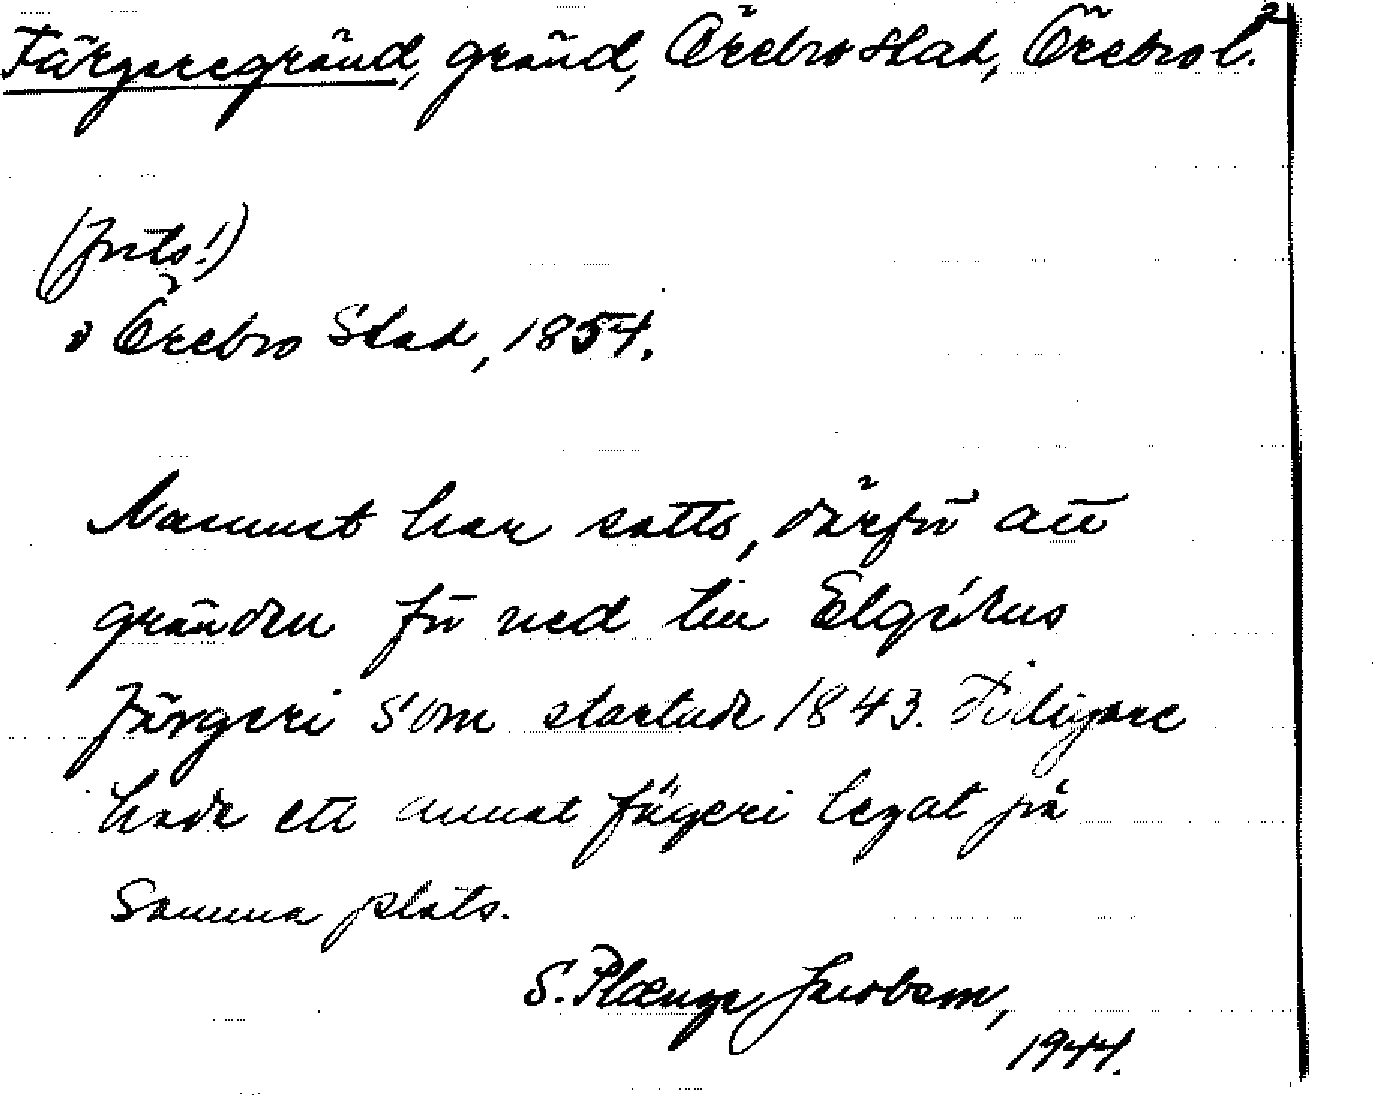 Färgaregränd, gränd, Örebro stad, Örebro l.
(frits!)
» Örebro Stad, 1854.
Namnet har satts, därför att
gränden för ned till Elgérus
färgeri som startade 1843. Tidigare
hade ett annat färgeri legat på
Samma plats.
S. Plænge Jacobson,
1944.